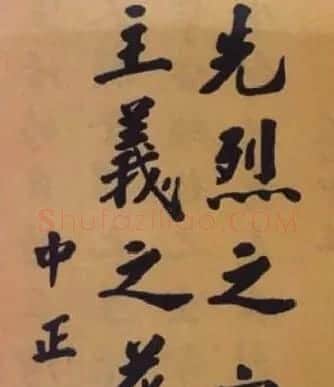 先烈之
主義之
中正
ShufaZiliao.COM